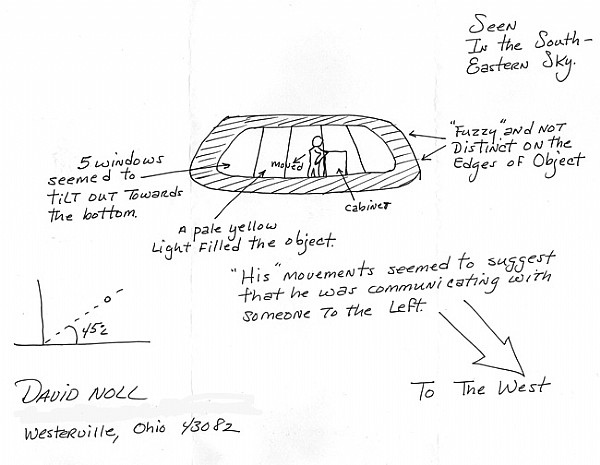 Seen
In the South-
Eastern Sky.
"Fuzzy" and NOT
Distinct on the
Edges of Object
5 windows
seemed to
tilt out towards
the bottom.
moved
cabinet
A pale yellow
Light filled the object.
"His" movements seemed to suggest
that he was communicating with
someone to the left.
To The West
45°
David Noll
Westerville, Ohio 43082